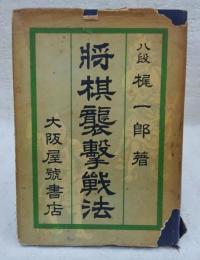 八段 梶一郎著
将棋襲撃戦法
大阪屋號書店